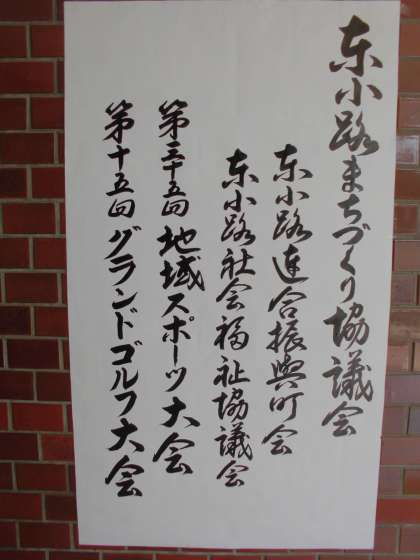 东小路まちづくり協議会
东小路連合振興町会
东小路社会福祉協議会
第三十五回 地域スポーツ大会
第十五回 グランドゴルフ大会